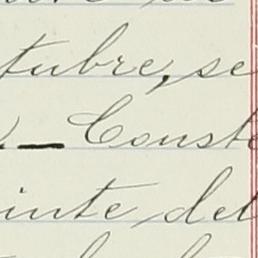 tubre, se
— Const
inte del